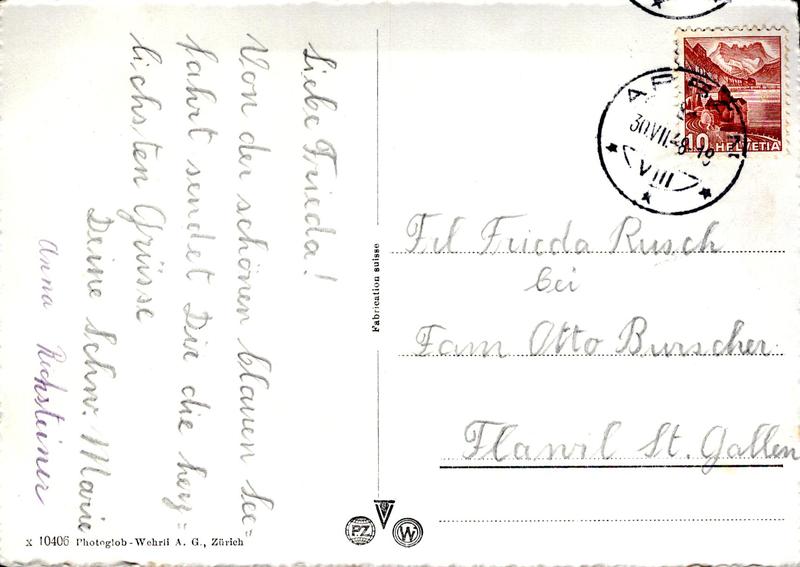 Liebe Frieda!
Von der schönen blauen See=
fahrt sendet Dir die herz=
lichsten Grüsse
Deine Schw. Marie
Anna Rechsteiner
x 10406 Photoglob-Wehrli A. G., Zürich
Fabrication suisse
PZ
W
30.VII.48-18
VIII
10 HELVETIA
Frl Frieda Rusch
bei
Fam Otto Burscher
Flawil St. Gallen